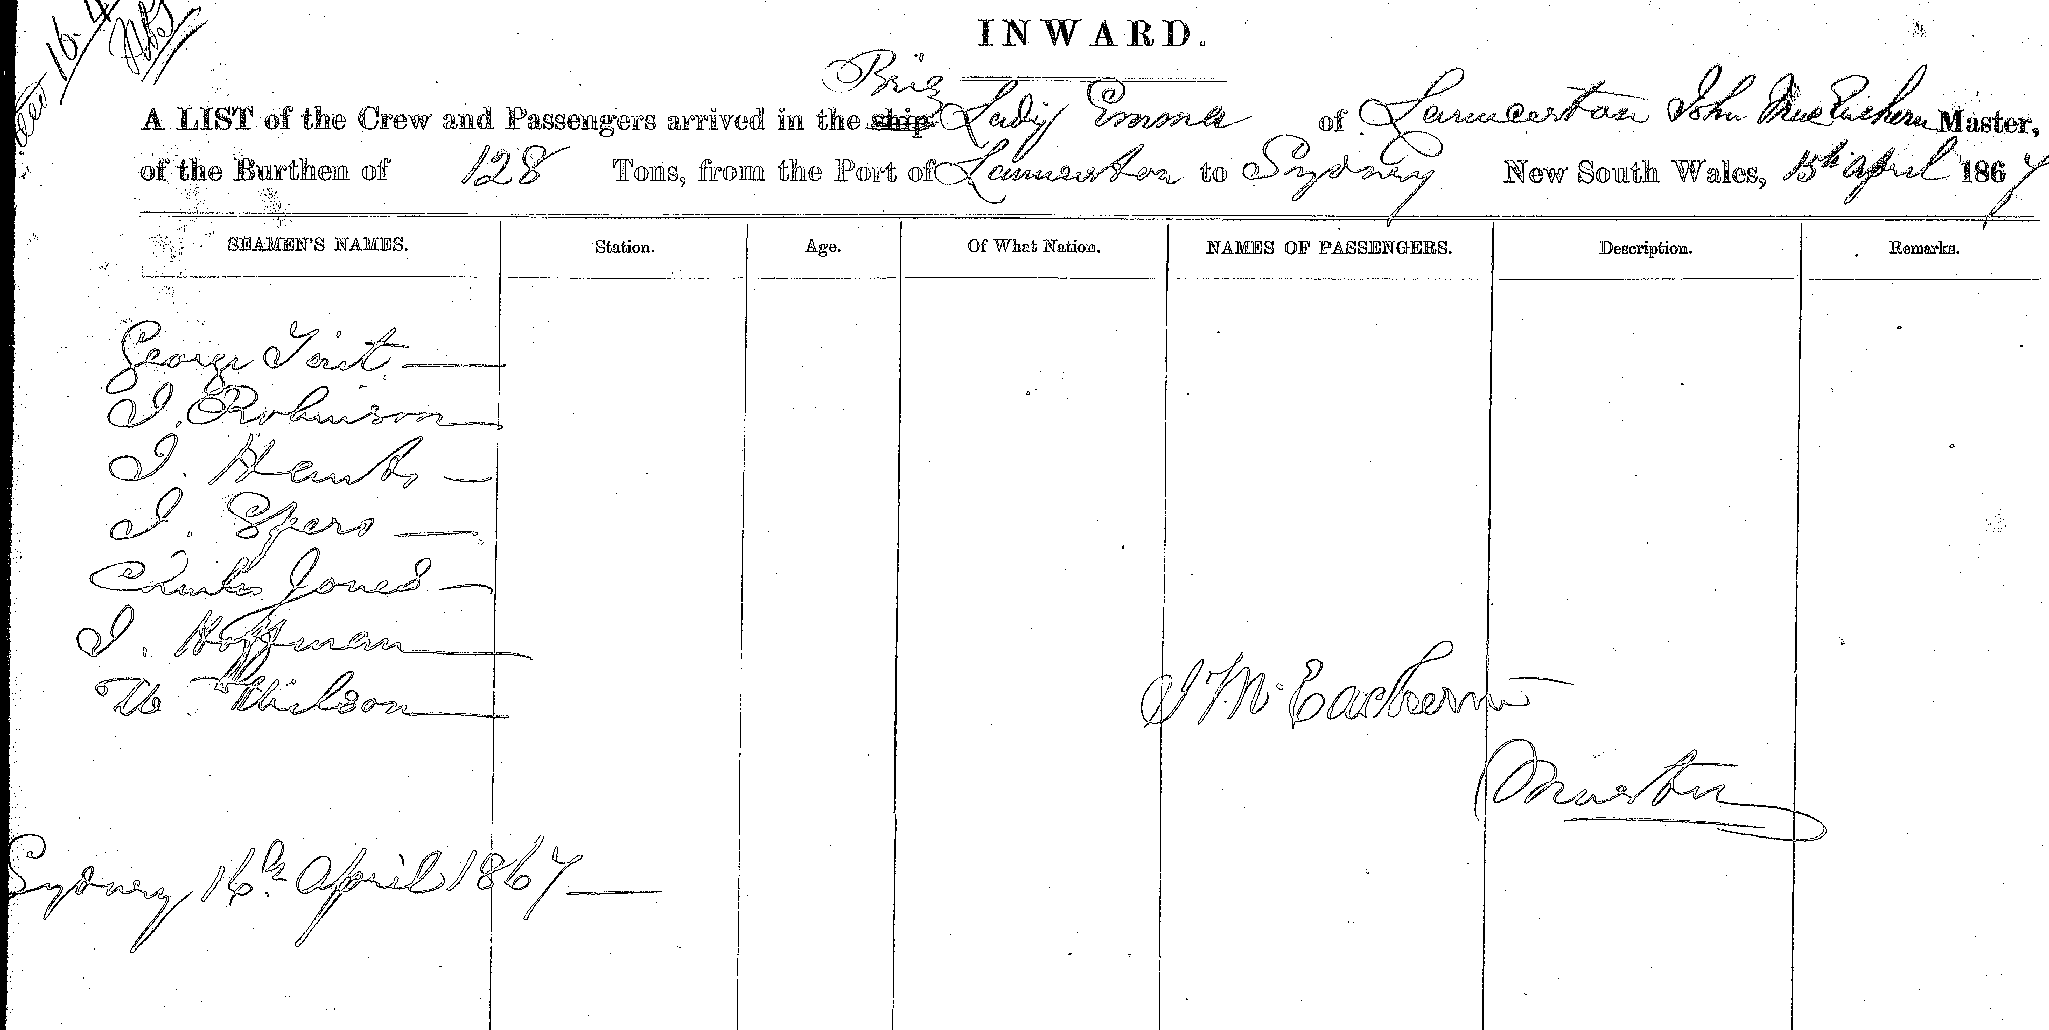 16.4
INWARD.
Brig
A LIST of the Crew and Passengers arrived in the ship Lady Emma of Launceston John MacEachern Master,
of the Burthen of 128 Tons, from the Port of Launceston to Sydney New South Wales, 15th April 1867
SEAMEN'S NAMES. Station. Age. Of What Nation. NAMES OF PASSENGERS. Description. Remarks.
George
J. Robinson
J.
J. Spero
Charles Jones
J. Hoffman
J McEachern
Master
Sydney 16th April 1867